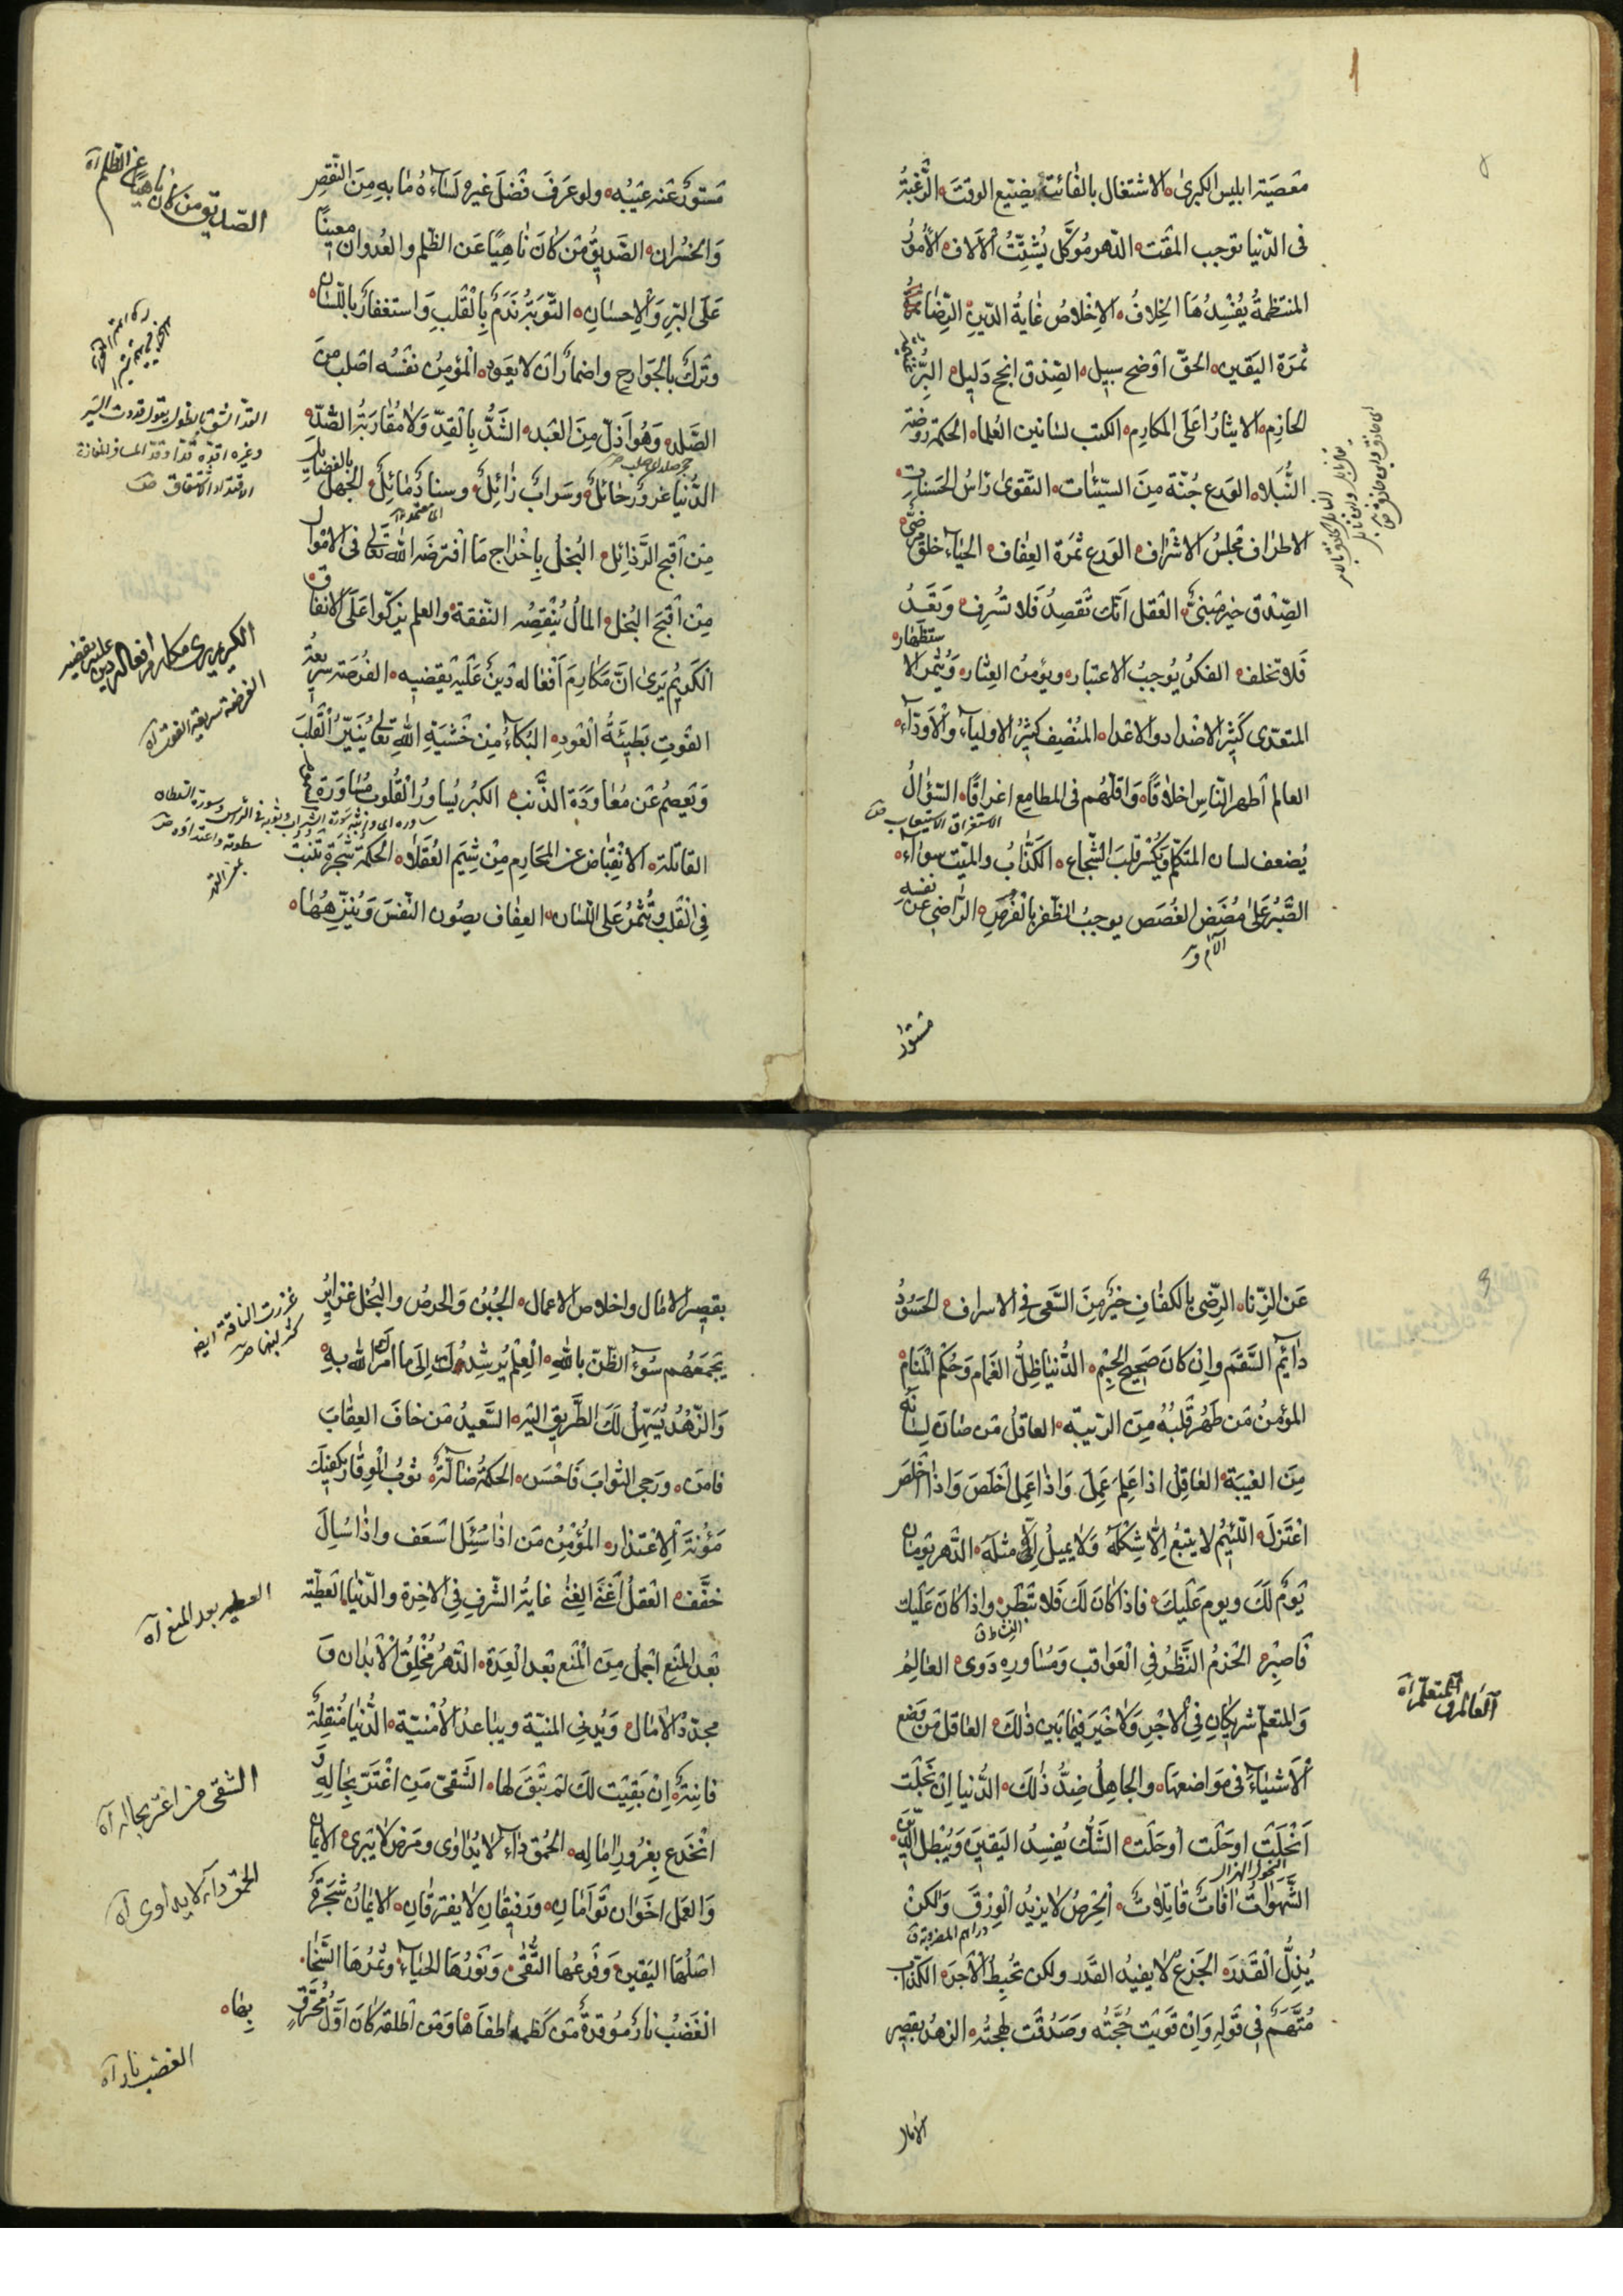 معصیة ابلیس الکبری الاشتغال بالفائت یضیّع الوقت الرّغبة
فی الدّنیا توجب المقت الدّهر موکّل یُشتِّتُ الآلاف الأمورُ
المنتظمةُ یُفْسِدُهَا الخِلافُ الاِخْلاصُ غایةُ الدّین الرِّضا
ثمرَة الیَقین الحقّ اَوضح سبیل الصِّدق انجح دَلیل البِرُّ غنیمة
الحازم الایثارُ اَعلَی المکارم الکتب بسٰاتین العُلماء الحکمة روضة
النُّبلاء الورع جُنّة مِنَ السیّئات التقوی رَاسُ الحسنات
الاطرٰاف مجلسُ الاشرٰاف الورَع ثمرَة العِفاف الحیَاء خلق مَرضیّ
الصِّدق خیر مَبنیّ العَقل اَنّک تَقصِدُ فَلا تُسرِف وَتَعِدُ
فَلا تخلف الفکرُ یُوجبُ الاعتبار ویؤمنُ العِثار وَیُثمر الاستظهار
المتعدی کثیر الاضداد والاعداء المُنْصِف کثیُر الاولیاء وَالاَودّاء
العالم اَطهر النّاس اخلاقًا وَاقلّهُم فی المطامِع اغراقًا السّؤالُ
یُضعف لسان المتکلّم وَیکْسر قلبَ الشّجاع الکَذّابُ والمَیّت سوٰاء
الصَّبْرُ عَلیٰ مُضَضِ الغُصَص یوجبُ الظّفر بالْفُرَصِ الرّاضی عن نفسه
الآم وير
مستور
مَستورٌ عَنه عَیْبُه ولو عَرَفَ فَضلَ غیره لَساءَهُ مٰا بِهِ مِنَ النّقصِ
وَالخسْران الصّدیقُ مَن کٰانَ نٰاهِیًا عَن الظّلم والعُدوان معینًا
عَلَی البِّرِ وَالاِحسٰانِ التّوبَةُ نَدَمٌ بِالْقَلبِ وَاستغفارٌ باللّسَان
وَتَرکٌ بالجَوارح واضمارٌ ان لا یَعود المؤمِنُ نَفْسُه اصلب مِنَ
الصَّلد وَهُوَ اَذَلّ مِنَ العَبد الشَدُّ بِالْقِدّ وَلا مُقٰارَبَةُ الضّدّ
الدُّنیا غرورٌ حٰائلٌ وسَرابٌ زٰائِلٌ وسنادٌ مٰائِلٌ الجَهلُ بالفضٰایل
مِن اَقبح الرَّذائِل البُخلُ بِاِخْراج مَا افْتَرضَه اللّٰه تعالی فی الاموال
مِن اَقْبَح البُخل المالُ یُنْقِصُه النّفقة والعلم یزکّوا عَلَی الانفاق
الکَریُم یَرَیٰ انَّ مَکٰارِمَ اَفعٰالِه دَینٌ عَلَیْه یَقضیِه الفُرصَة سریعةُ
الفَوتِ بَطیئَةُ الْعَودِ البُکاءُ مِن خَشیَةِ اللّٰهِ تعالی یُنَیّرُ الْقَلبَ
وَیَعصِمُ عَن مُعٰاوَدَة الذّنب الکبُر یُسٰاورُ القُلُوب مُسٰاوَرَة
القٰاتِلة الانْقِبٰاض عن المَحَارِم مِنْ شِیَم العُقَلاء الحکمَة شَجَرة تَنبُت
فِی الْقَلبِ وَتُثمرُ عَلی اللّسَان العِفٰاف یصُون النّفسَ وَیُنزّهُهٰا
الصّدیق من کان ناهیا عن الظلم آه
الکریم یری مکارم افعاله دین علیه یقضیه
الفرصة سریعة الفوت آه
عَن الزِّنا الرِّضی بِالکفٰافِ خیرٌ مِنَ السَّعیِ فِی الاسراف الحَسُودُ
دٰائم السَّقَم واِن کانَ صَحیِح الجِسْم الدُّنیٰا ظِلُّ الغَمام وَحُکْم المَنام
المؤمنُ مَن طَهُر قَلبُهُ مِنَ الرّیبة العاقلُ مَن صٰانَ لِسٰانَهُ
مِنَ الغیبَة العٰاقِلُ اذا عَلِمَ عَمِلَ وَاذا عَمِلَ اَخلَصَ وَاذا اَخلَصَ
اعْتَزلَ اللّئیُم لا یتبَعُ اِلّا شِکلَهُ وَلا یمیلُ اِلّا اِلیٰ مثلَه الدّهر یَومٰان
یَومٌ لَکَ ویوم عَلَیکَ فاذا کٰانَ لَکَ فَلا تَبْطر واذا کٰانَ عَلَیک
فَاصبِر الحَزمُ النَّظرُ فِی الْعَواقب وَمُشاورةِ ذَوی العالِمُ
وَالمتعلّم شریکانِ فِی الاَجرِ وَلا خیَر فیما بَیَن ذٰلکَ العٰاقل مَن وَضع
الاَشیاء فی مَواضعِهَا والجاهِلُ ضِدُّ ذٰلکَ الدُّنیا اِن نَجَلَت
اَنْجَلَتِ اوحَلَت اُوحَلَت الشَکُّ یُفسِدُ الیَقیَن وَیُبْطِلُ الدّینَ
الشَّهَوٰاتُ آفٰاتٌ قٰاتِلاتٌ الْحِرصُ لا یَزیدُ الرِزقَ وَلٰکنْ
یُذِلُّ الْقَدرَ الجَزعُ لا یفیدُ القَدَر ولکن تُحبِطُ الاَجرَ الکَذّاب
مُتَّهَمٌ فی قَولِهِ وَاِنْ قَویَت حُجَّتُه وَصَدُقَت لهجتُه الزهدُ تقصیر
العالم والمتعلم آه
الآمال
بقصر الامٰال واخلاص الاعمال الجُبْنُ وَالحرصُ والبُخل غزایزُ
یَجمَعَهُم سُوءُ الظَنّ باللّهِ الْعِلمُ یُرشِدُکَ اِلَی مٰا اَمَرکَ اللّٰه بِهِ
وَالزّهْدُ یُسَهّلُ لَکَ الطّریِقَ الیه السَّعیدُ مَن خافَ العِقٰابَ
فامَن وَرَجی الثّوابَ فَاَحْسَن الحکمَةُ ضٰالّةٌ ثوبُ الوِقٰار یکفیِکَ
مَؤنَة الاِعْتذار المُؤمِنُ مَن اذا سُئِلَ اسْعَف واذا سٰالَ
خفَّفَ العَقلُ اَغنَی الغِنیٰ غایةُ الشّرفِ فِی الاخِرة والدّنیٰا العَطیّة
بَعد المَنع اجمَل مِنَ المَنع بَعد الْعِدَة الدّهرُ مُخلِقُ الاَبدان وَ
مجدّدُ الاٰمٰال وَیُدنی المنیّة ویبٰاعدُ الاُمْنیّة الدُّنیا مُنتقِلةٌ
فانِیَةٌ اِنْ بَقِیَت لکَ لَم تَبْقَ لَها الشَقیّ مَنِ اغْتَرّ بِحٰالِهِ وَ
انْخَدَعَ بِغُرورِ اٰمٰالِهِ الحُمقُ داءٌ لا یُداوٰی ومَرَض لا یَبری الایمان
وَالعَمل اخَوٰان تَوأمٰانِ وَرَفیقٰانِ لا یَفتَرقٰانِ الایمٰانُ شَجَرةٌ
اصلُهَا الیَقین وَفَرعُها التُّقیٰ وَنُورُهَا الحیَاء وَثمرُهَا السَّخا
الغَضَبُ نارٌ موقدَةٌ مَن کظمه اطفَاهٰا وَمَن اَطلقه کانَ اَوّلَ مُحْتَرقٍ
بِهٰا
غزرت الناقة ای
کثر لبنها
العطیه بعد المنع آه
الشقی من اغترّ بحاله آه
الحمق داء لا یداوی آه
الغضب نار آه